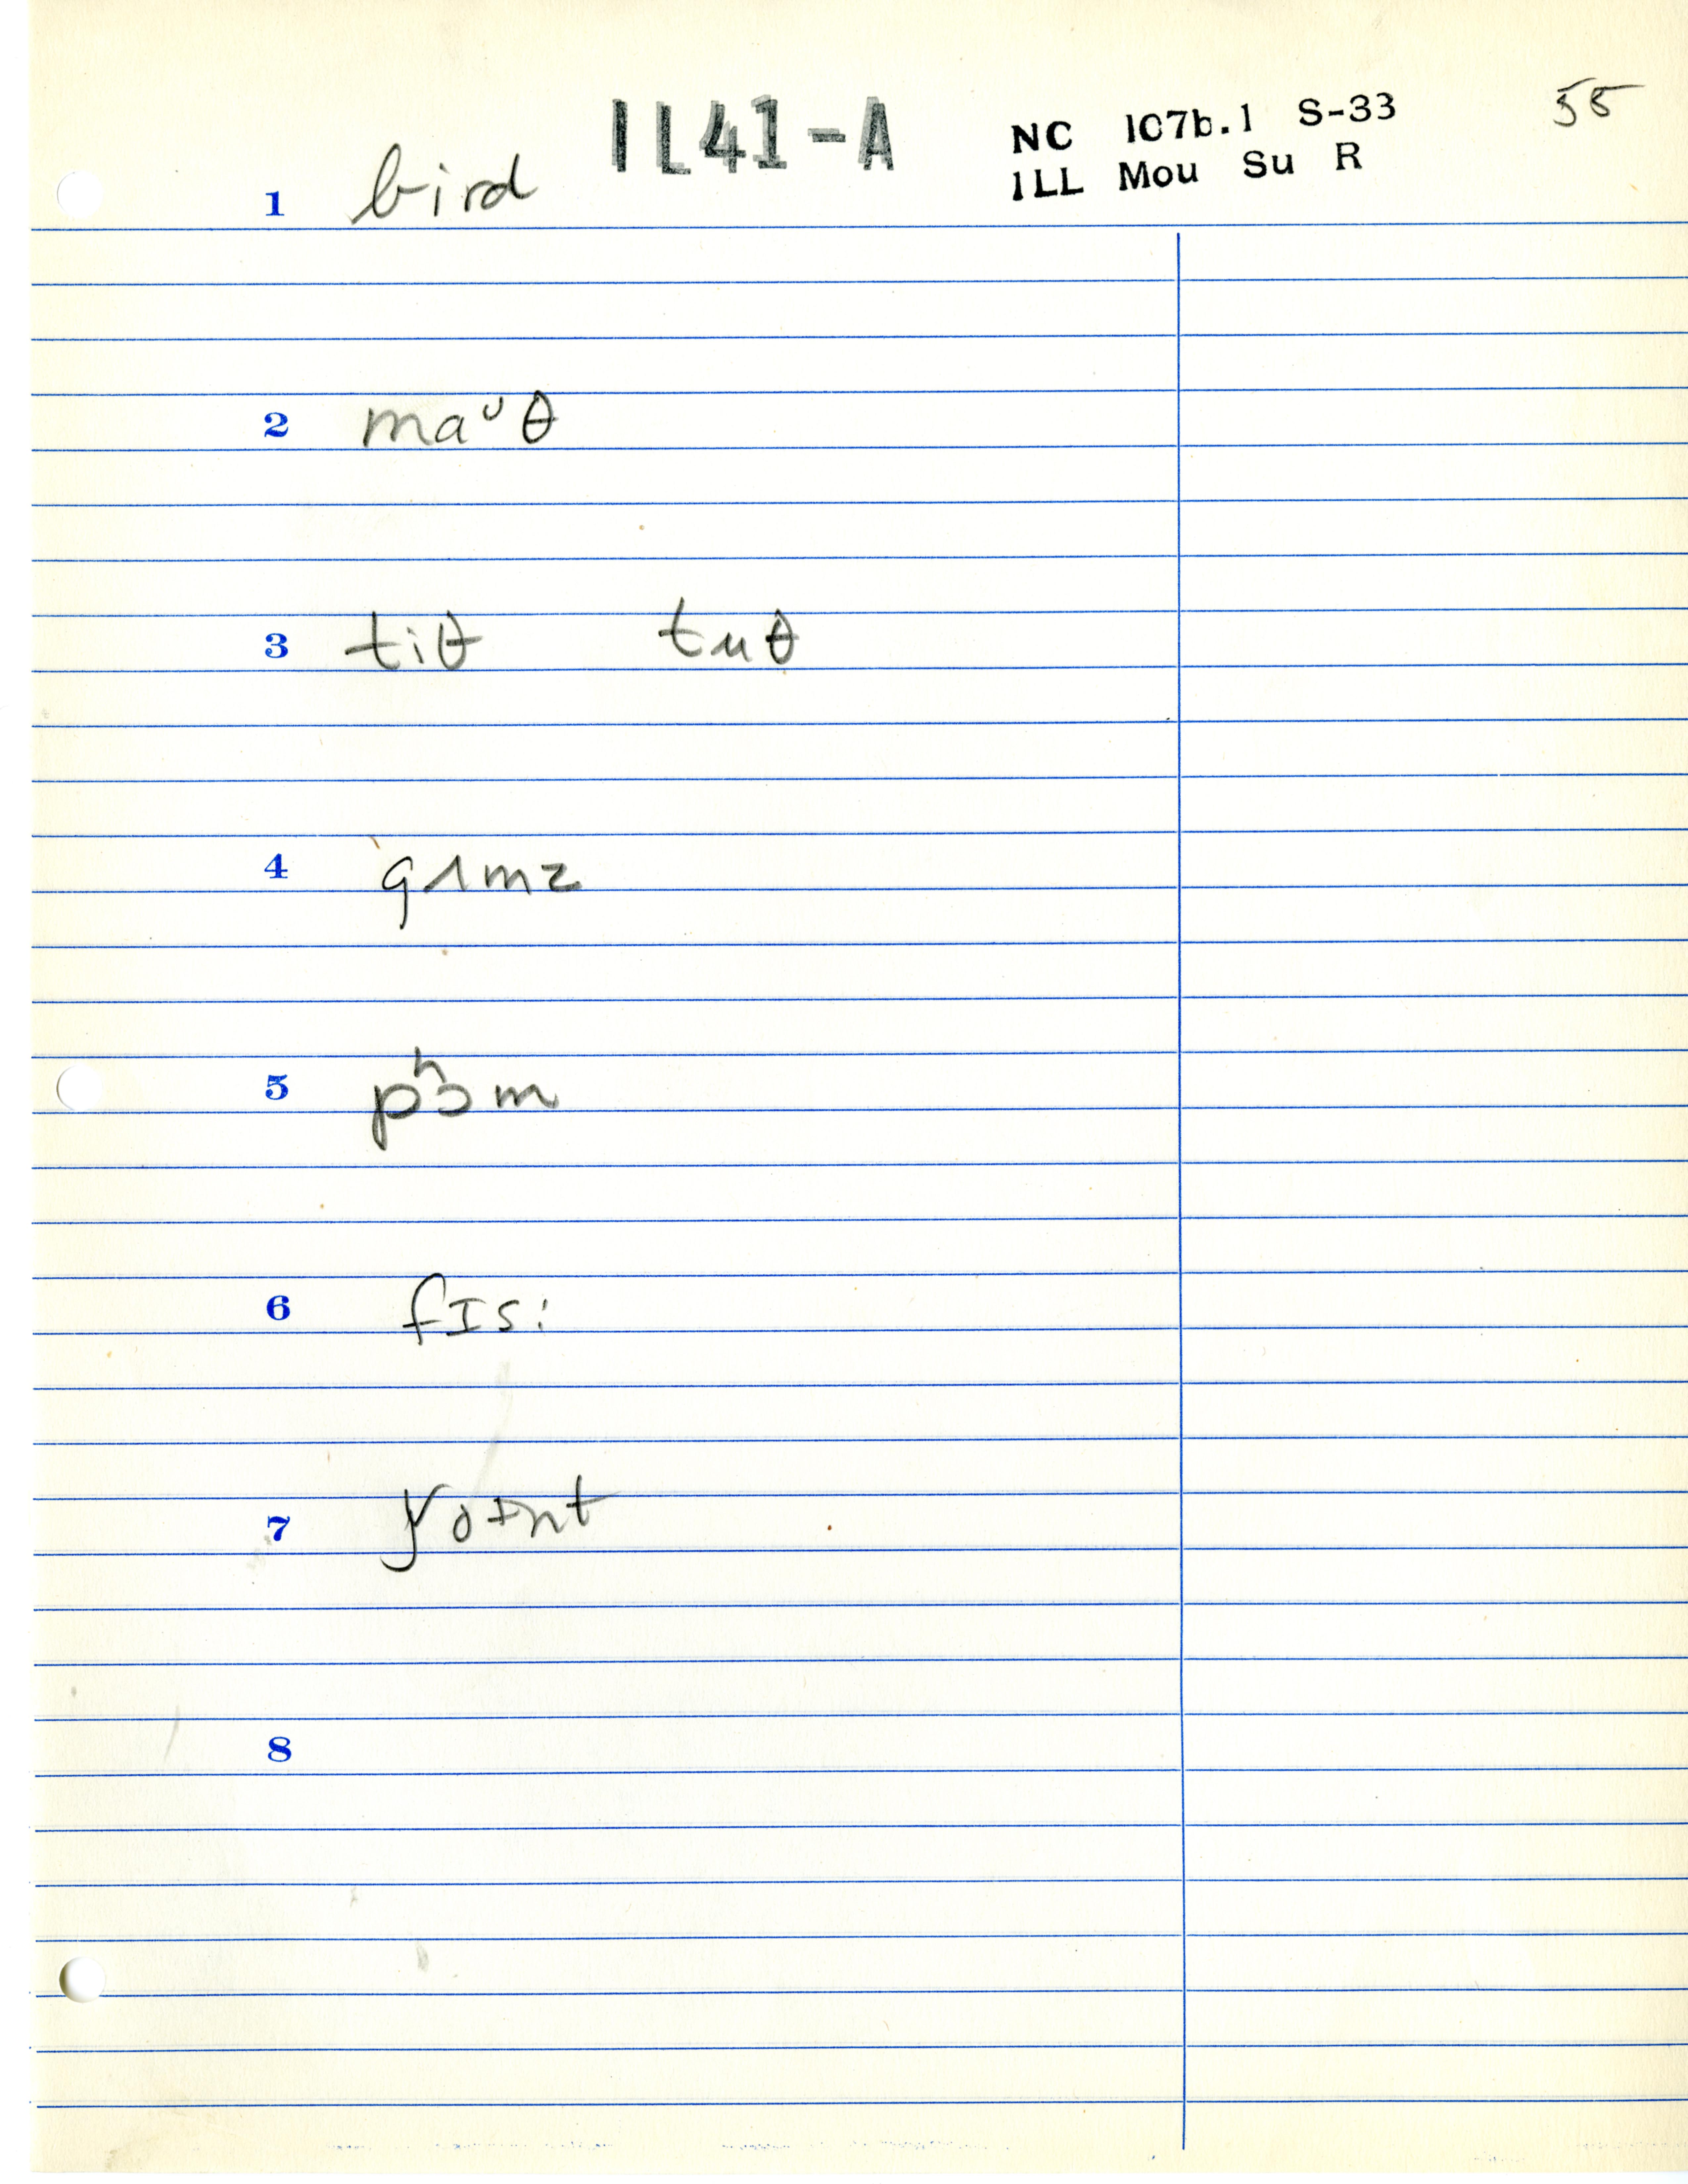 IL41-A
NC 107b.1 S-33 55
ILL Mou Su R
1 bird
2 maᶸθ
3 tiθ tuθ
4 gʌmz
5 pʰɔm
6 fɪs:
7 ɏoɪnt
8